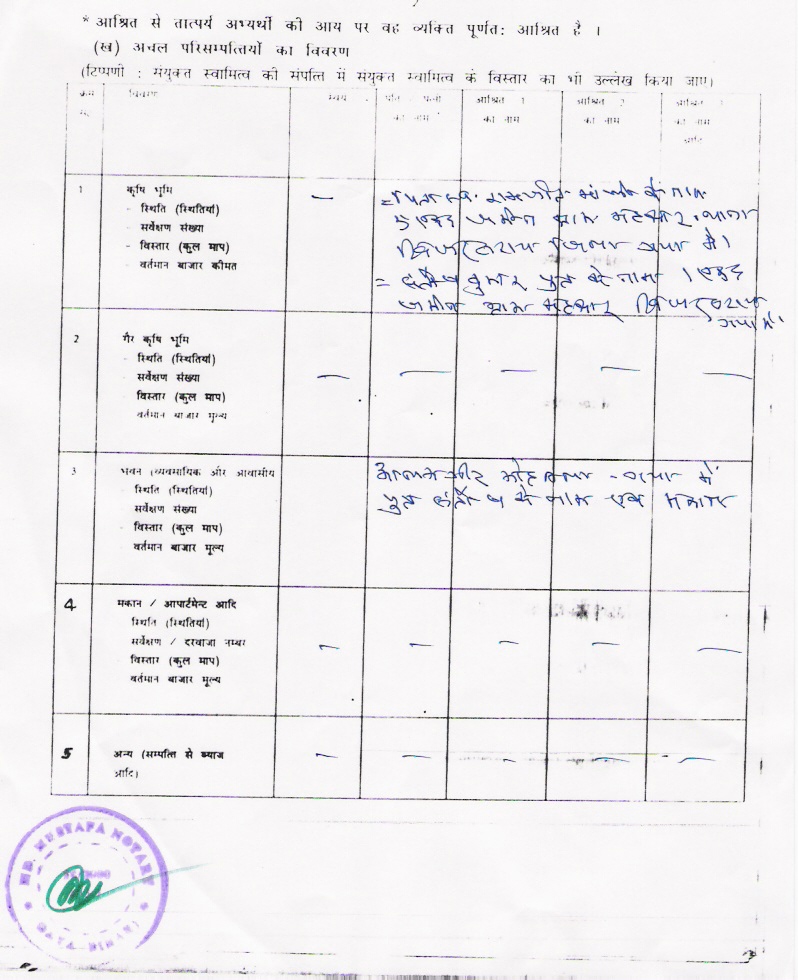 * आश्रित से तात्पर्य अभ्यर्थी की आय पर वह व्यक्ति पूर्णत: आश्रित है ।
(ख) अचल परिसम्पत्तियों का विवरण
(टिप्पणी : संयुक्त स्वामित्व की संपत्ति में संयुक्त स्वामित्व के विस्तार का भी उल्लेख किया जाए)
क्रम विवरण स्वयं पति पत्नी आश्रित 1 आश्रित 2 आश्रित 3
का नाम का नाम का नाम का नाम
आदि
1 कृषि भूमि
- स्थिति (स्थितियां)
- सर्वेक्षण संख्या
- विस्तार (कुल माप)
- वर्तमान बाजार कीमत
— के नाम
5 एकड़ जमीन ग्राम थाना
जिला गया में।
= संतोष कुमार पुत्र के नाम 1 एकड़
जमीन ग्राम
गया में।
2 गैर कृषि भूमि
- स्थिति (स्थितियां)
- सर्वेक्षण संख्या
- विस्तार (कुल माप)
- वर्तमान बाजार मूल्य
— — — — —
3 भवन (व्यवसायिक और आवासीय
- स्थिति (स्थितियां)
- सर्वेक्षण संख्या
- विस्तार (कुल माप)
- वर्तमान बाजार मूल्य
मोहल्ला - गया में
पुत्र संतोष के नाम एक मकान
4 मकान / आपार्टमेन्ट आदि
स्थिति (स्थितियां)
सर्वेक्षण / दरवाजा नम्बर
विस्तार (कुल माप)
वर्तमान बाजार मूल्य
— — — — —
5 अन्य (सम्पत्ति से ब्याज
आदि)
— — — — —
MD. MUSTAFA NOTARY
GAYA (BIHAR)